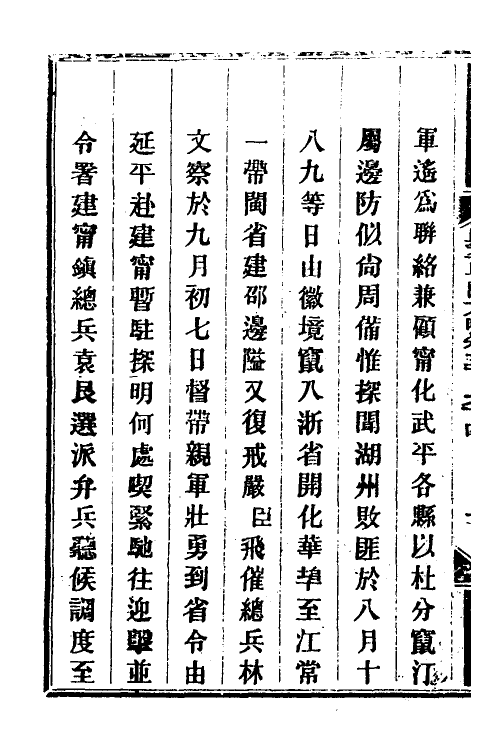 軍遙爲聯絡兼顧甯化武平各縣以杜分竄汀
屬邊防似尙周備惟探聞湖州敗匪於八月十
八九等日由徽境竄入浙省開化華埠至江常
一帶閩省建邵邊隘又復戒嚴臣飛催總兵林
文察於九月初七日督帶親軍壯勇到省令由
延平赴建甯暫駐探明何處喫緊馳往迎擊並
令署建甯鎮總兵袁艮選派弁兵聽候調度至